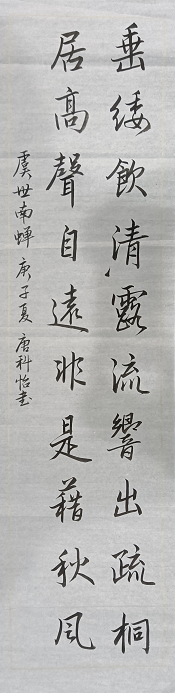 垂緌飲清露流響出疏桐
居高聲自遠非是藉秋風
虞世南蟬 庚子夏 唐科怡书